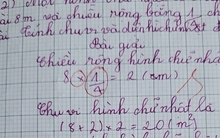 2) Một hình chữ
dài 8m, và chiều rộng bằng 1/4 ch
dài. Tính chu vi và diện tích hình ch
Bài giải
Chiều rộng hình chữ nhật
8 x 1/4 = 2 (m)
Chu vi hình chữ nhật là
(8 + 2) x 2 = 20 (m²)